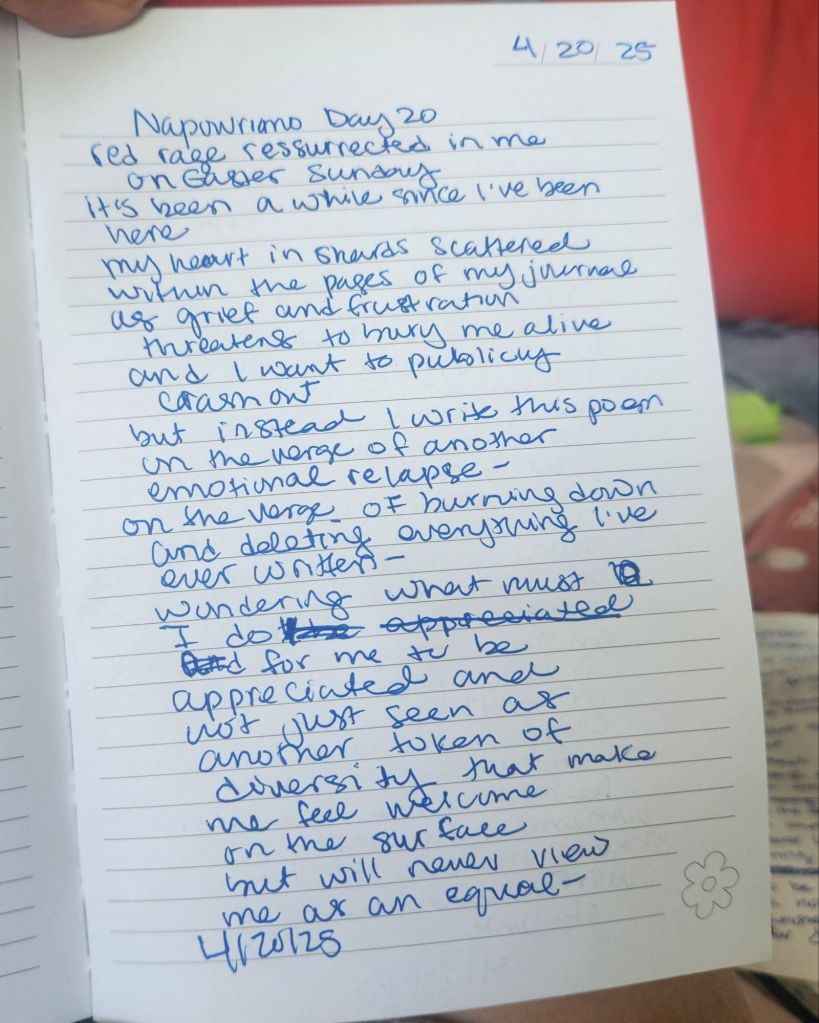 4/20/25
Napowrimo Day 20
red rage ressurrected in me
on Easter Sunday
it's been a while since I've been
here
my heart in shards scattered
within the pages of my journal
as grief and frustration
threatens to bury me alive
and I want to publicly
crash out
but instead I write this poem
on the verge of another
emotional relapse-
on the verge of burning down
and deleting everything I've
ever written-
wondering what must
I do appreciated
for me to be
appreciated and
not just seen as
another token of
diversity that make
me feel welcome
on the surface
but will never view
me as an equal-
4/20/25